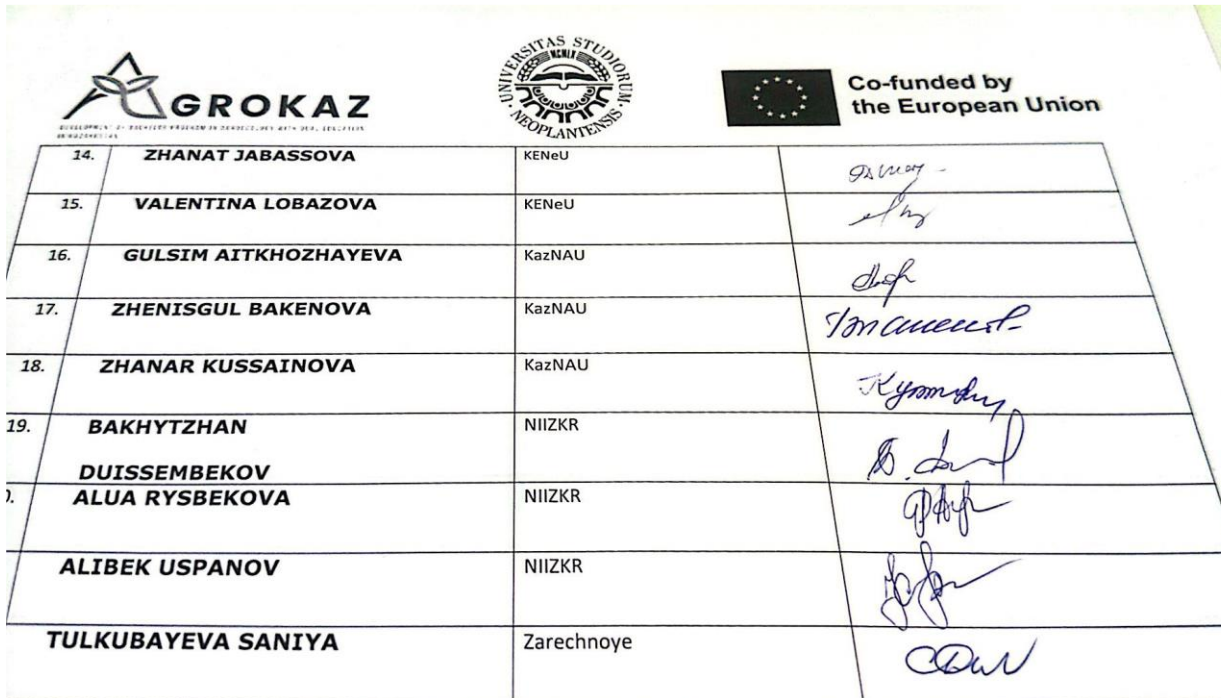 AGROKAZ
UNIVERSITAS STUDIORUM
MCMLX
NEOPLANTENSIS
Co-funded by
the European Union
14. ZHANAT JABASSOVA KENeU
15. VALENTINA LOBAZOVA KENeU
16. GULSIM AITKHOZHAYEVA KazNAU
17. ZHENISGUL BAKENOVA KazNAU
18. ZHANAR KUSSAINOVA KazNAU
19. BAKHYTZHAN NIIZKR
DUISSEMBEKOV
ALUA RYSBEKOVA NIIZKR
ALIBEK USPANOV NIIZKR
TULKUBAYEVA SANIYA Zarechnoye